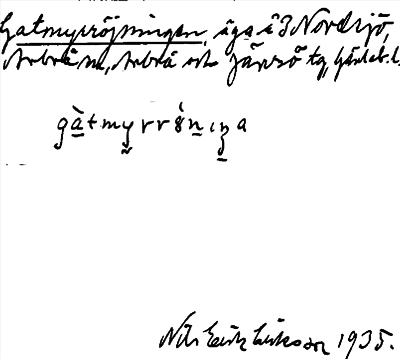 Gatmyrröjningen, äga i 3 Nordsjö,
Arbrå sn, Arbrå och Järvsö tg, Gävleb. l.
gàtmyrrȯ́nıŋa
Nils Erik Eriksson 1935.